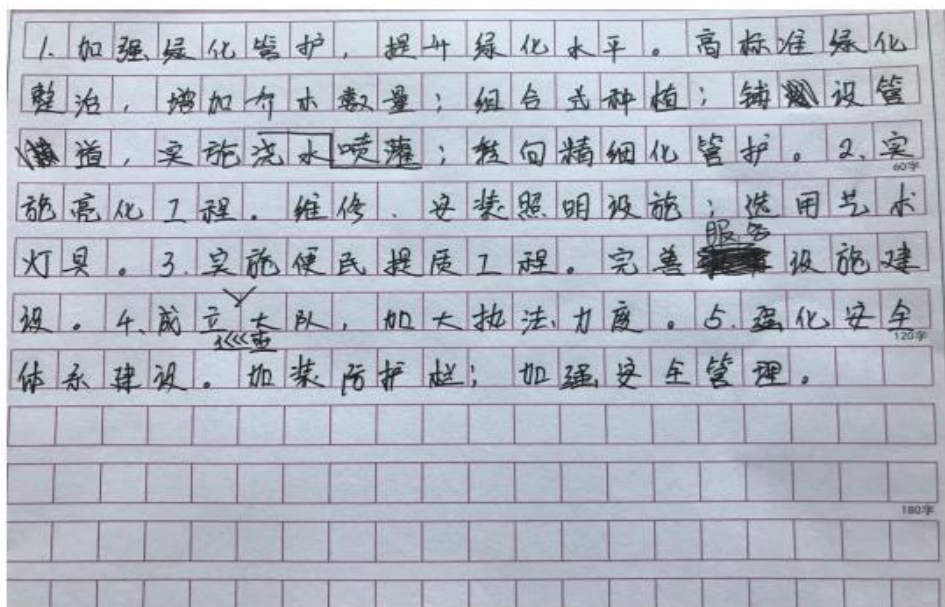 1.加强绿化管护，提升绿化水平。高标准绿化
整治，增加乔木数量；组合式种植；铺设管
道，实施浇水喷灌；转向精细化管护。2.实
60字
施亮化工程。维修、安装照明设施；选用艺术
灯具。3.实施便民提质工程。完善服务设施建
设。4.成立大队，加大执法力度。5.强化安全
120字
体系建设。加装防护栏；加强安全管理。
180字